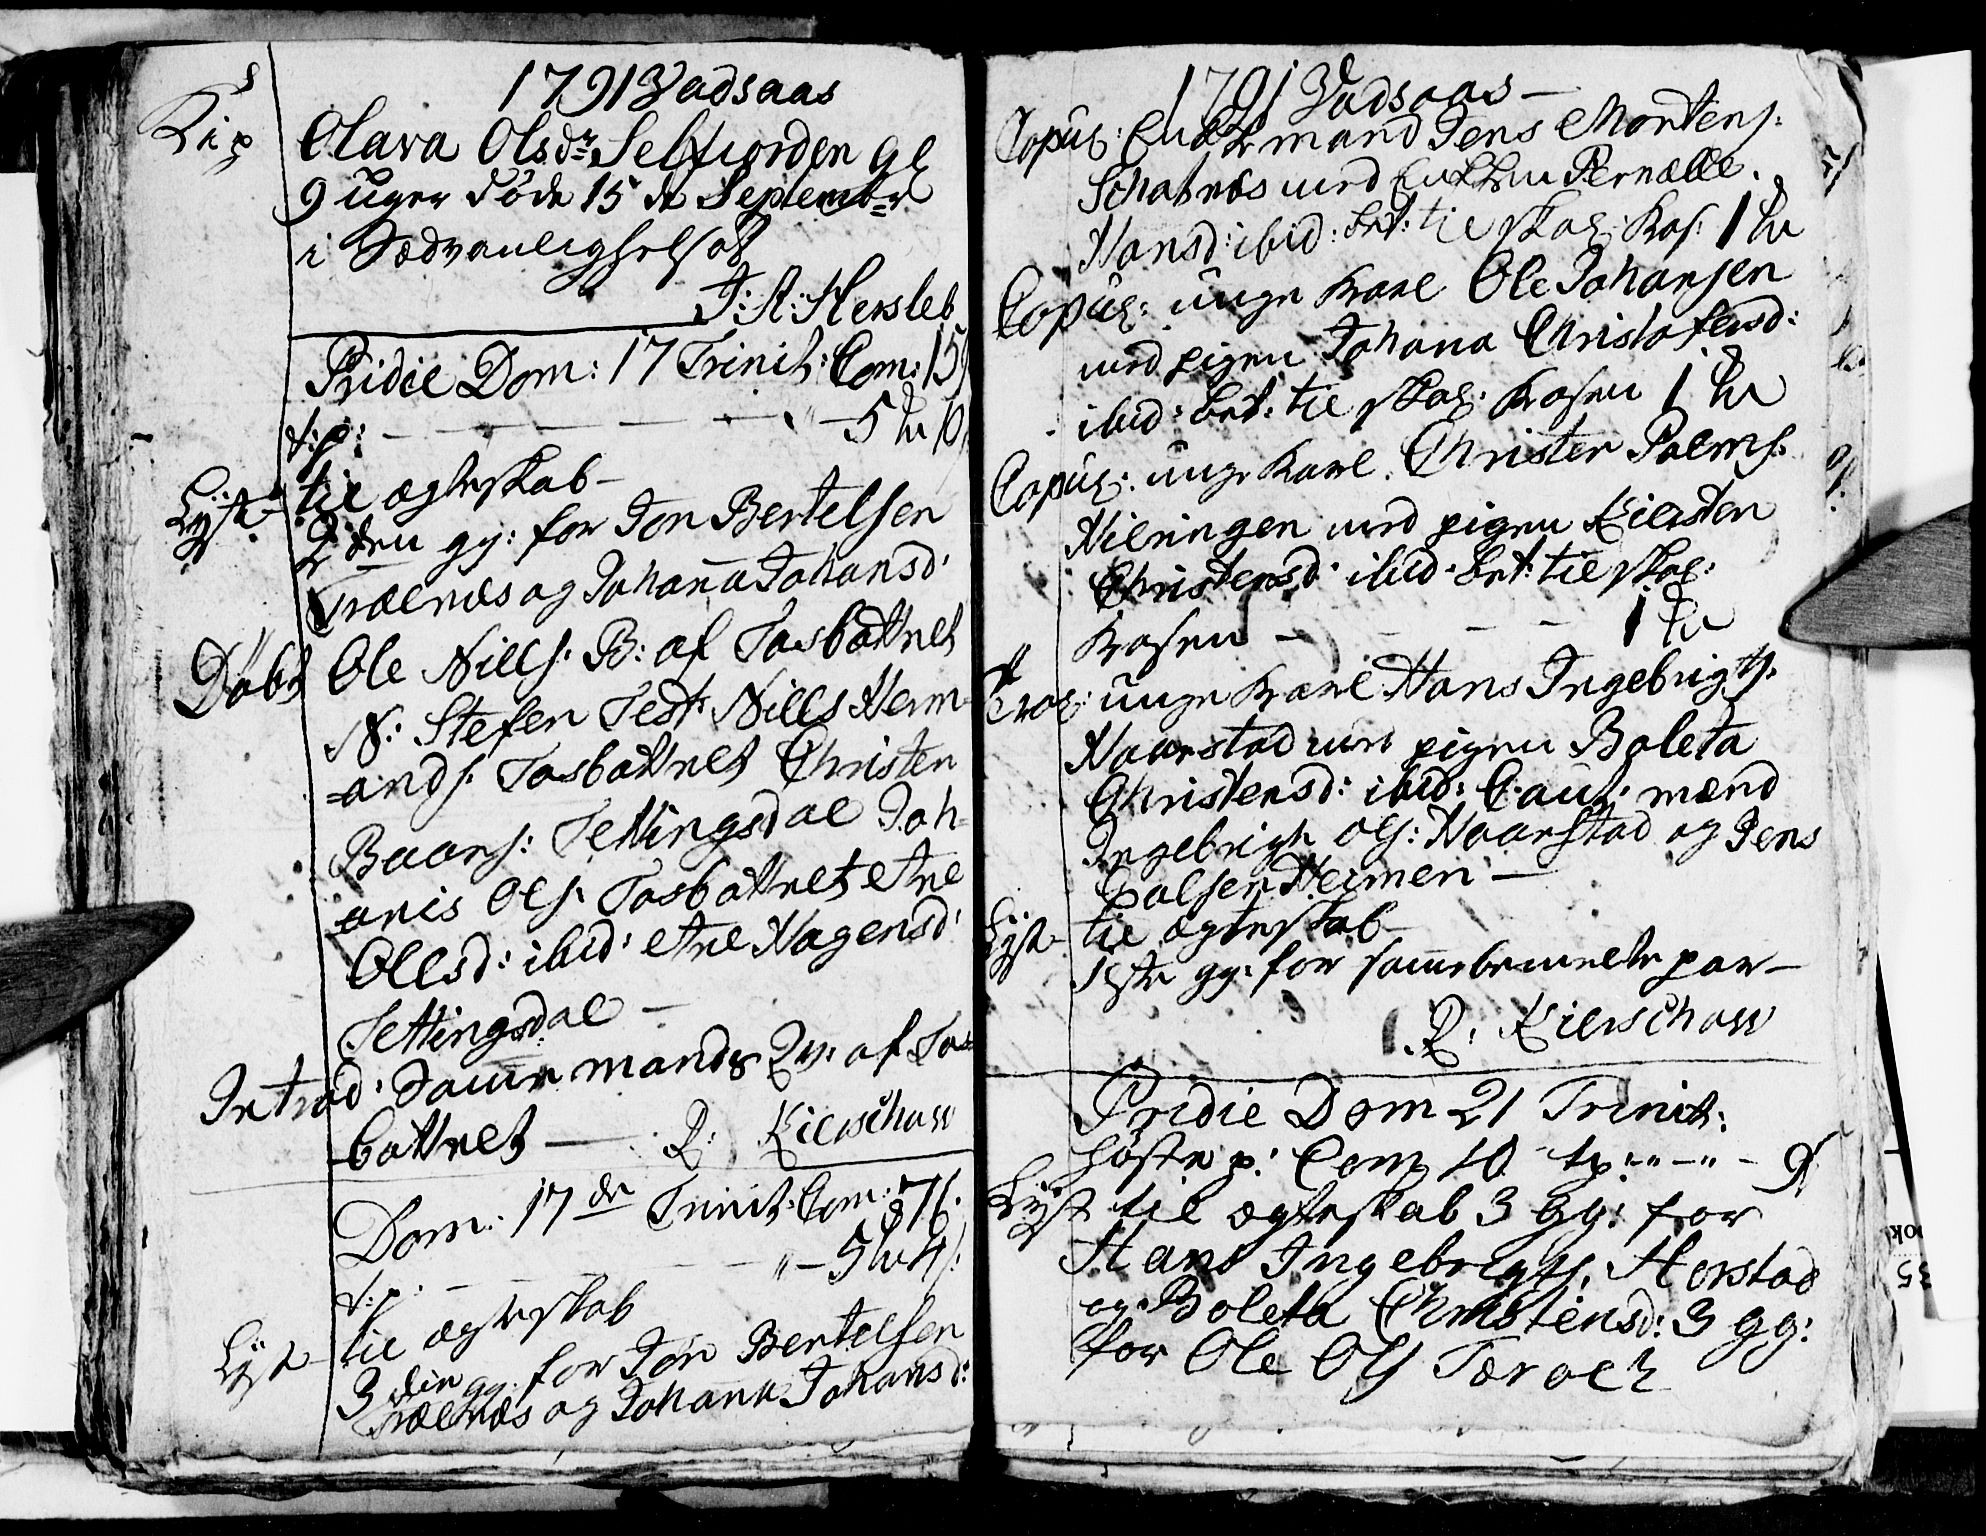 1791 Vadsaas
Olava Olsdr Selfiorden gl
9 uger døde 15 de Septembr
i Sædvanlighels
J: A: Hersleb
Pridie Dom: 17 Trinit: Com: 15
t:p: - - - - - 5
Lyst til ægteskab
2den gg: for Jon Bertelsen
Trælnæs og Johanna Johansd:
Døbt Ole Nills: B: af Tosbottnet
N: Stefen Test: Nills Herm=
=ands: Tosbottnet Christen
Baars: Tettingsdal Joh=
=anis Ols: Tosbottnet
Olesd: ibid: Hagensd:
Tettingsdal —
Introd: Samme mands Qv: af Tos=
bottnet — R: Kierschow
Dom: 17de Trinit: Com:
t:p: - - - 5
Lyst til ægteskab
3die gg: for Jon Bertelsen
Trælnæs og Johanna Johansd:
1791 Vadsaas —
Copul: Enkemand Jens Mortens:
med Enken Pernælle
Hansd: ibid: bet: til skol: Kas: 1
Copul: unge Karl Ole Johansen
med pigen Johana Christofersd:
ibid: bet: til skol: Kasen 1
Copul: unge Karl Christen Polms:
Hilringen med pigen Kiersten
Christensd: ibid: bet: til skol:
Kasen - - - 1
Trol: unge Karl Hans Ingebrigts:
Haarstad med pigen Boleta
Christensd: ibid: Caut: mænd
Ingebrigt Ols: Haarstad og Jens
Polsen Heimen —
Lyst til ægteskab
1ste gg: for sammebemelte par —
R: Kierschow
Pridie Dom 21 Trinit:
høste p: Com 10 tp: - - 9
Lyst til ægteskab 3 gg: for
Hans Ingebrigts: Horstad
og Boleta Christensd: 3 gg:
for Ole Ols